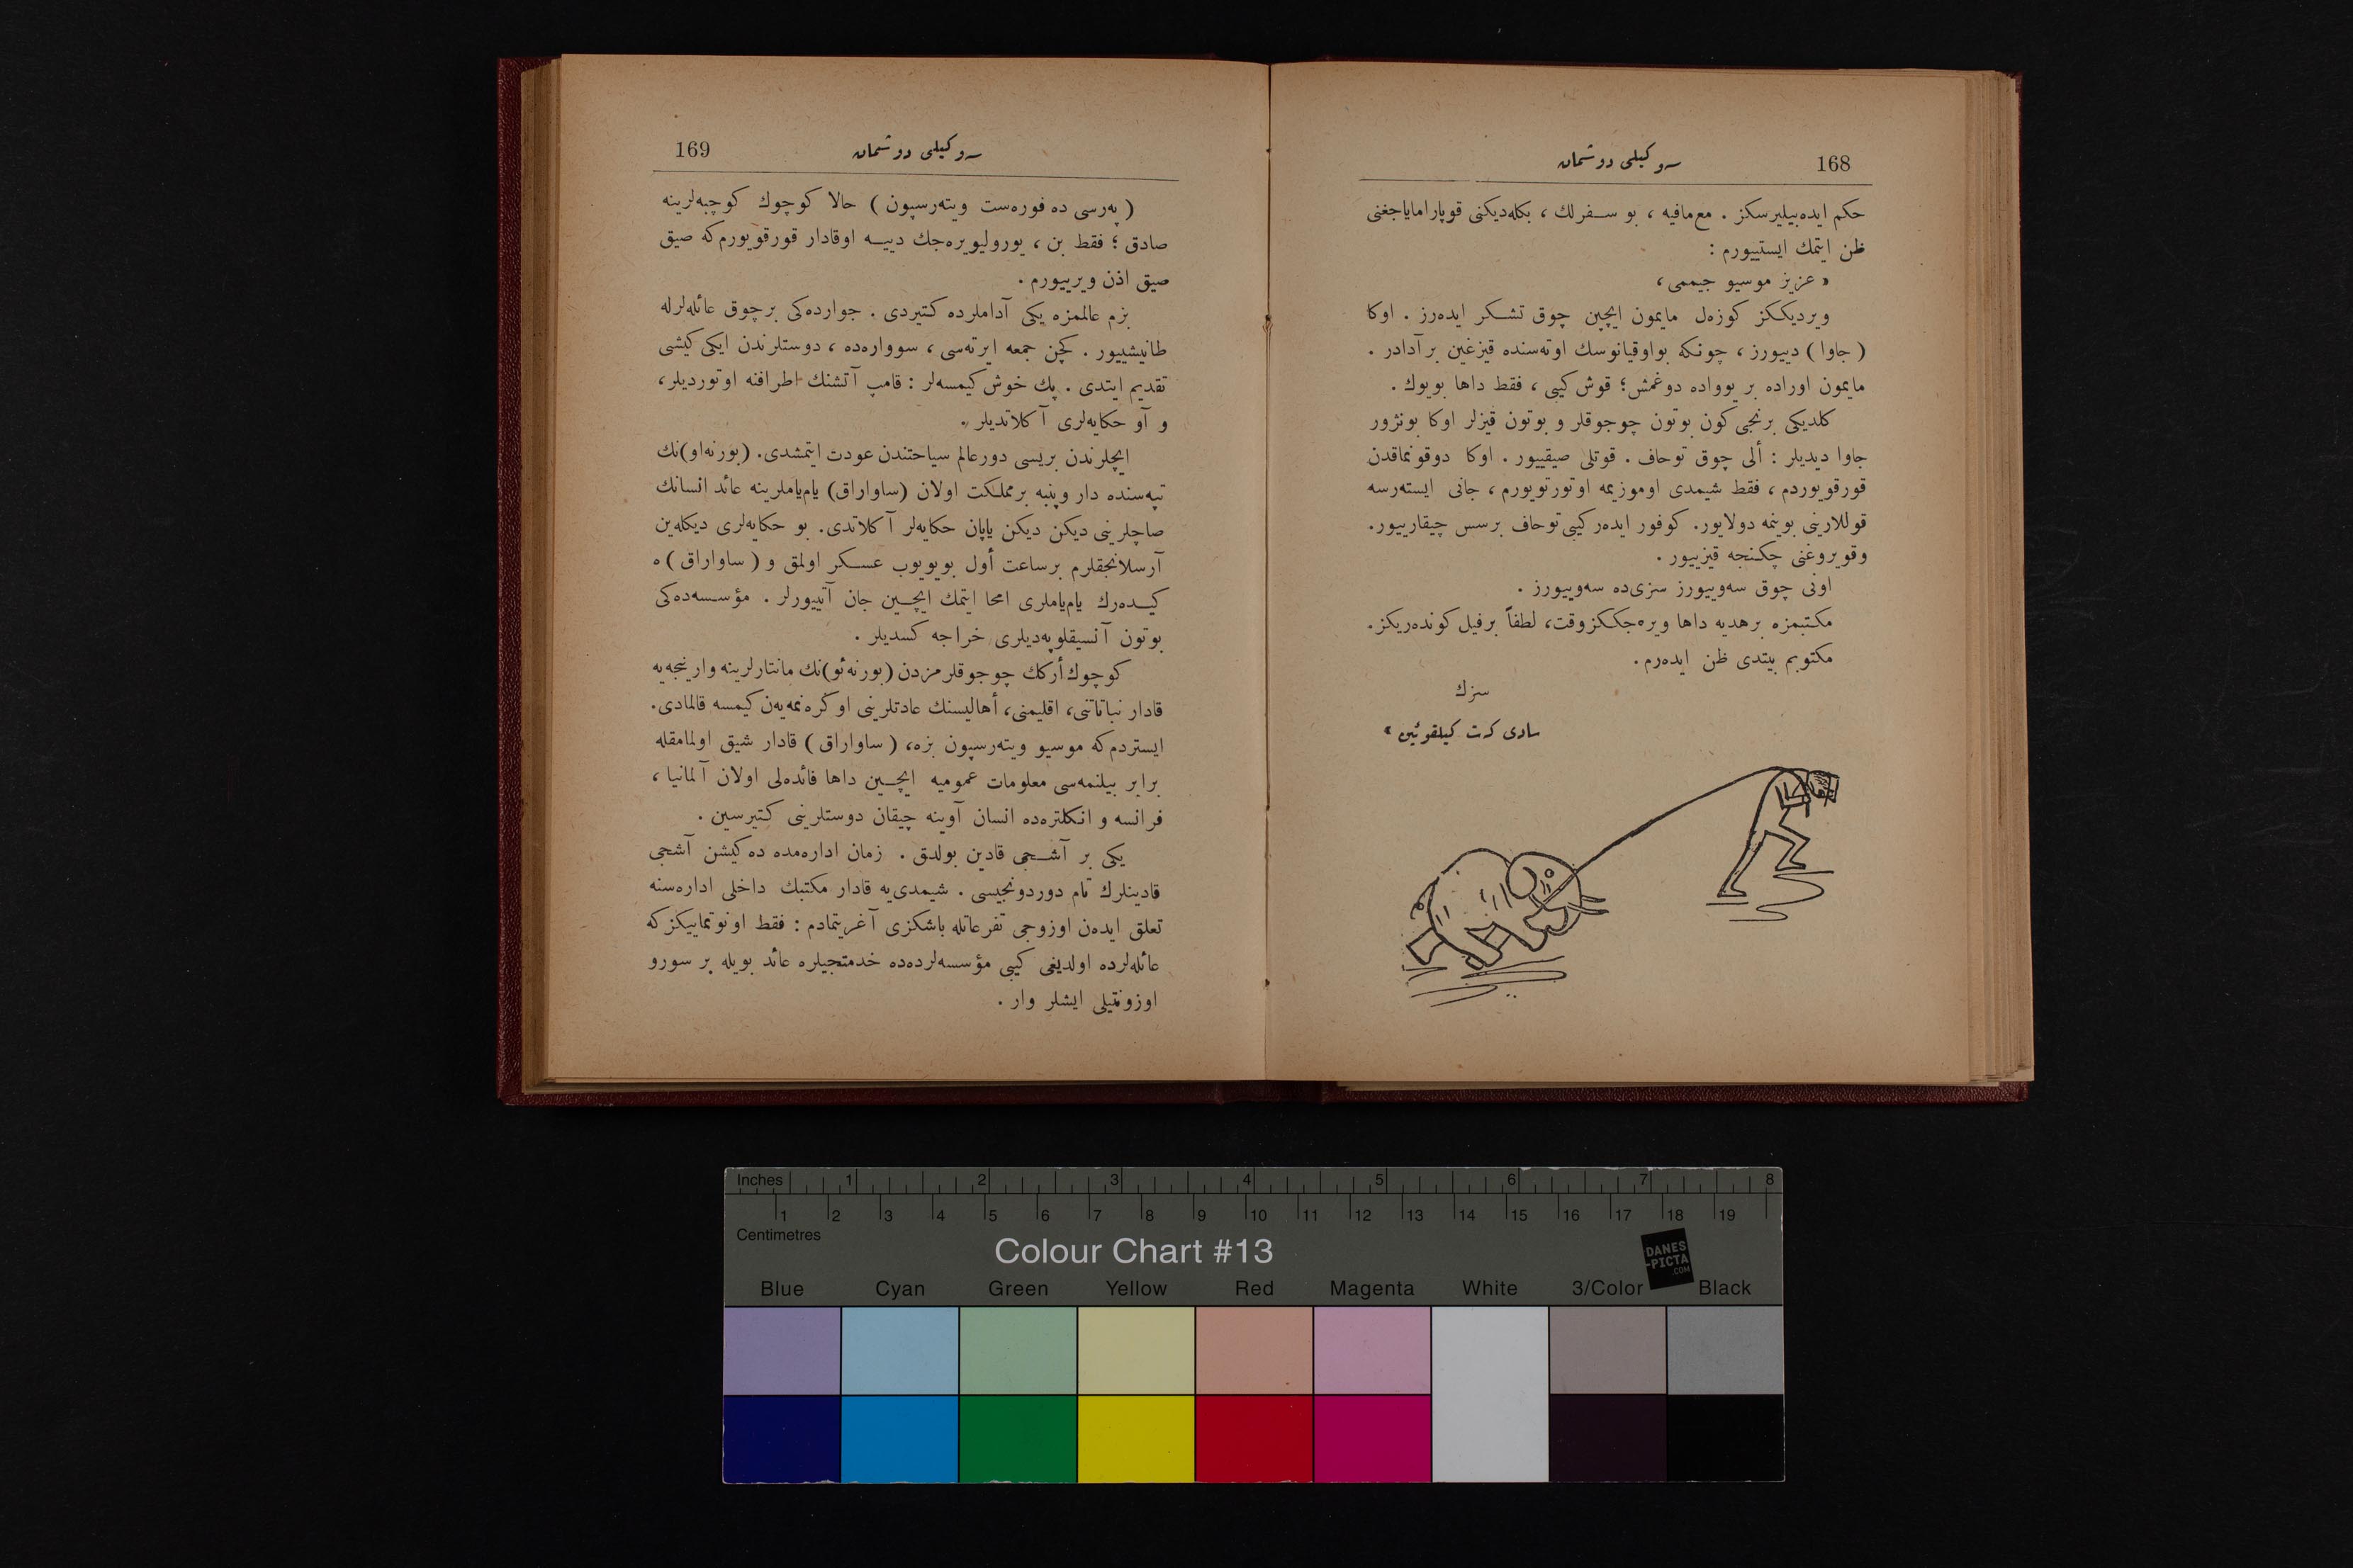 168
سوكیلی دوشمان
حكم ایده‌بیلیرسكز . مع‌مافیه ، بو سـفرلك ، بكله‌دیكنی قوپارامایاجغنی
ظن ایتمك ایستییورم :
« عزیز موسیو جیممی ،
ویردیككز كوزه‌ل مایمون ایچین چوق تشـكر ایده‌رز . اوكا
( جاوا ) دییورز ، چونكه بواوقیانوسك اوته‌سنده قیزغین برآدادر .
مایمون اوراده بر یوواده دوغمش؛ قوش كیبی ، فقط داها بویوك .
كلدیكی برنجی كون بوتون چوجوقلر و بوتون قیزلر اوكا بونژور
جاوا دیدیلر : ألی چوق توحاف . قوتلی صیقییور . اوكا دوقونماقدن
قورقویوردم ، فقط شیمدی اوموزیمه اوتورتویورم ، جانی ایسته‌رسه
قوللارینی بوینمه دولایور. كوفور ایده‌ر كیبی توحاف برسس چیقارییور.
وقویروغنی چكنجه قیزییور .
اونی چوق سه‌وییورز سزی‌ده سه‌وییورز .
مكتبمزه برهدیه داها ویره‌جككزوقت، لطفاً برفیل كونده‌ریكز.
مكتوبم بیتدی ظن ایده‌رم.
سزك
سادی كت كیلقوئین »
169
سوكیلی دوشمان
( په‌رسی ده فوره‌ست ویته‌رسپون ) حالا كوچوك كوچبه‌لرینه
صادق ؛ فقط بن ، یورولیویره‌جك دییـه اوقادار قورقویورم‌كه صیق
صیق اذن ویرییورم .
بزم عالممزه یكی آداملرده كتیردی . جوارده‌كی برچوق عائله‌لرله
طانیشییور . كچن جمعه ایرته‌سی ، سوواره‌ده ، دوستلرندن ایكی كیشی
تقدیم ایتدی . پك خوش كیمسه‌لر : قامپ آتشنك اطرافنه اوتوردیلر،
و آو حكایه‌لری آكلاتدیلر .
ایچلرندن بریسی دورعالم سیاحتندن عودت ایتمشدی. (بورنه‌او)نك
تپه‌سنده دار وپنبه برمملكت اولان (ساواراق) یام‌یاملرینه عائد انسانك
صاچلرینی دیكن دیكن یاپان حكایه‌لر آكلاتدی. بو حكایه‌لری دیكله‌ین
آرسلانجقلرم برساعت أول بویویوب عسـكر اولمق و ( ساواراق ) ه
كیـده‌رك یام‌یاملری امحا ایتمك ایچـین جان آتییورلر . مؤسسه‌ده‌كی
بوتون آنسیقلوپه‌دیلری خراجه كسدیلر .
كوچوك أركك چوجوقلرمزدن (بورنه‌ئو)نك مانتارلرینه وارینجه‌یه
قادار نباتاتنی، اقلیمنی، أهالیسنك عادتلرینی اوكره‌نمه‌یه‌ن كیمسه قالمادی.
ایستردم‌كه موسیو ویته‌رسپون بزه، ( ساواراق ) قادار شیق اولمامقله
برابر بیلنمه‌سی معلومات عمومیه ایچـین داها فائده‌لی اولان آلمانیا ،
فرانسه و انكلتره‌ده انسان آوینه چیقان دوستلرینی كتیرسین .
یكی بر آشـجی قادین بولدق . زمان اداره‌مده ده‌كیشن آشجی
قادینلرك تام دوردونجیسی . شیمدی‌یه قادار مكتبك داخلی اداره‌سنه
تعلق ایده‌ن اوزوجی تفرعاتله باشكزی آغریتمادم : فقط اونوتماییكزكه
عائله‌لرده اولدیغی كیبی مؤسسه‌لرده‌ده خدمتجیلره عائد بویله بر سورو
اوزونتیلی ایشلر وار .
Inches 1 2 3 4 5 6 7 8
1 2 3 4 5 6 7 8 9 10 11 12 13 14 15 16 17 18 19
Centimetres
Colour Chart #13
DANES
-PICTA
.COM
Blue Cyan Green Yellow Red Magenta White 3/Color Black